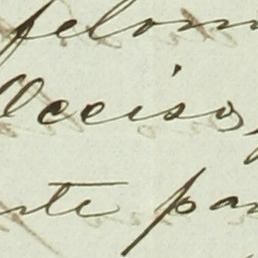 felom
Occiso,
nte pa